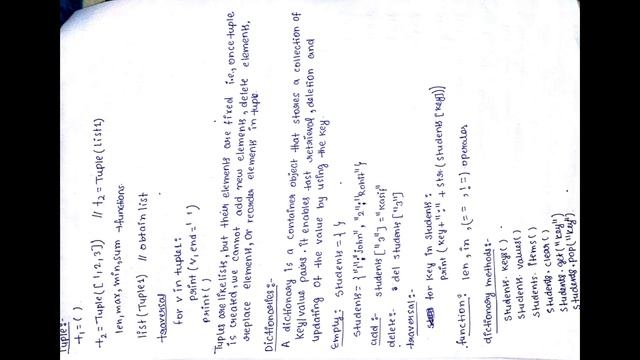 Tuple:-
t1 = ( )
t2 = Tuple([1,2,3]) // t2 = Tuple(list1)
len, max, min, sum functions
list(Tuple1) // obtain list
traversal
for v in tuple1:
print(v, end=' ')
print()
Tuples are like lists, but their elements are fixed i.e, once tuple
is created, we cannot add new elements, delete elements,
replace elements, or reorder elements in tuple.
Dictionaries:-
A dictionary is a container object that stores a collection of
key/value pairs. it enables fast retrieval, deletion and
updating of the value by using the key.
Empty:- students = { }
students = {"1":"john", "2":"Rohit"}
add:- students["3"] = "Kasif"
delete:- del students["3"]
traversal:-
for key in students:
print(key + ":" + str(students[key]))
function: len, in, (==, !=) operates
dictionary methods:-
students.keys()
students.values()
students.items()
students.clear()
students.get("key")
students.pop("key")